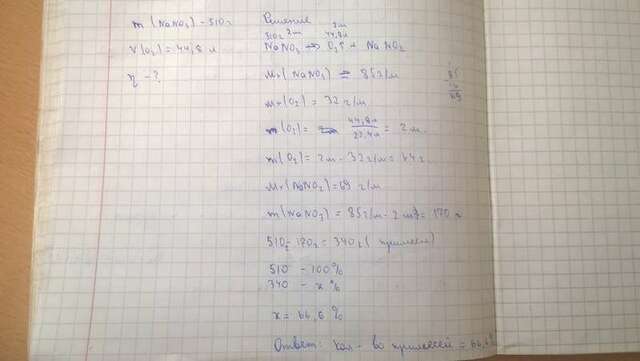 m(NaNO₃) - 510г
V(O₂) = 44,8 л
η - ?
Решение
2м
510г 2м 44,8л
NaNO₃ → O₂↑ + NaNO₂
Mr(NaNO₃) = 85г/м
Mr(O₂) = 32 г/м
m(O₂) = 44,8л / 22,4л = 2м.
m(O₂) = 2м - 32г/м = 64г
Mr(NaNO₂) = 69 г/м
m(NaNO₃) = 85г/м - 2м = 170 г
510г - 170г = 340г (примесей)
510 - 100%
340 - x %
x = 66,6 %
Ответ: кол-во примесей = 66,6%
85
16
69